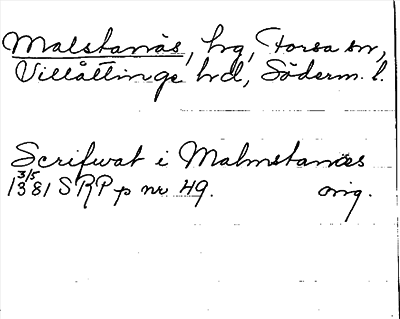 Malstanäs, hg, Forsa sn,
Villåttinge hd, Söderm. l.
Scrifwat i Malmstanæs
3/5 1381 SRP p nr 49. orig.